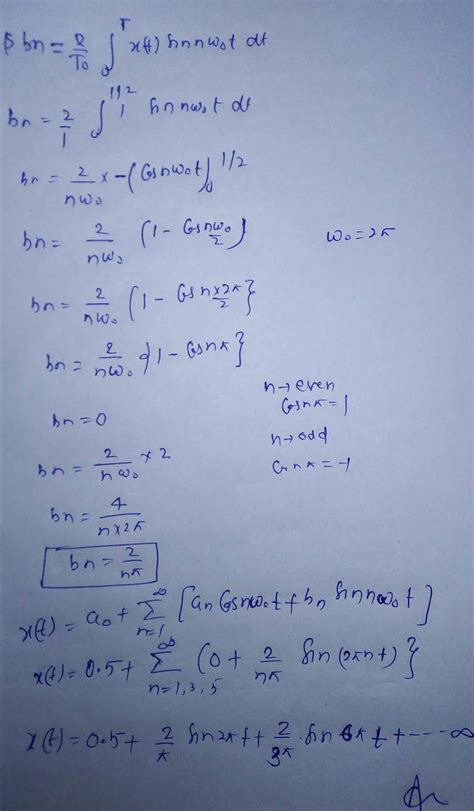 bn = 2/T0 ∫0^T x(t) sin nω0t dt
bn = 2/1 ∫0^1/2 1 sin nω0t dt
bn = 2/nω0 x -(Cos nω0t)0^1/2
bn = 2/nω0 (1 - Cos nω0/2) ω0 = 2π
bn = 2/nω0 (1 - Cos nx2π/2}
bn = 2/nω0 {1 - Cos nπ}
n → even
Cos nπ = 1
bn = 0
n → odd
Cos nπ = -1
bn = 2/nω0 x 2
bn = 4/nx2π
bn = 2/nπ
x(t) = a0 + ∑n=1^∞ [an Cos nω0t + bn sin nω0t]
x(t) = 0.5 + ∑n=1,3,5^∞ (0 + 2/nπ sin (2πnt)}
x(t) = 0.5 + 2/π sin 2πt + 2/3π . sin 6πt + ---- ∞